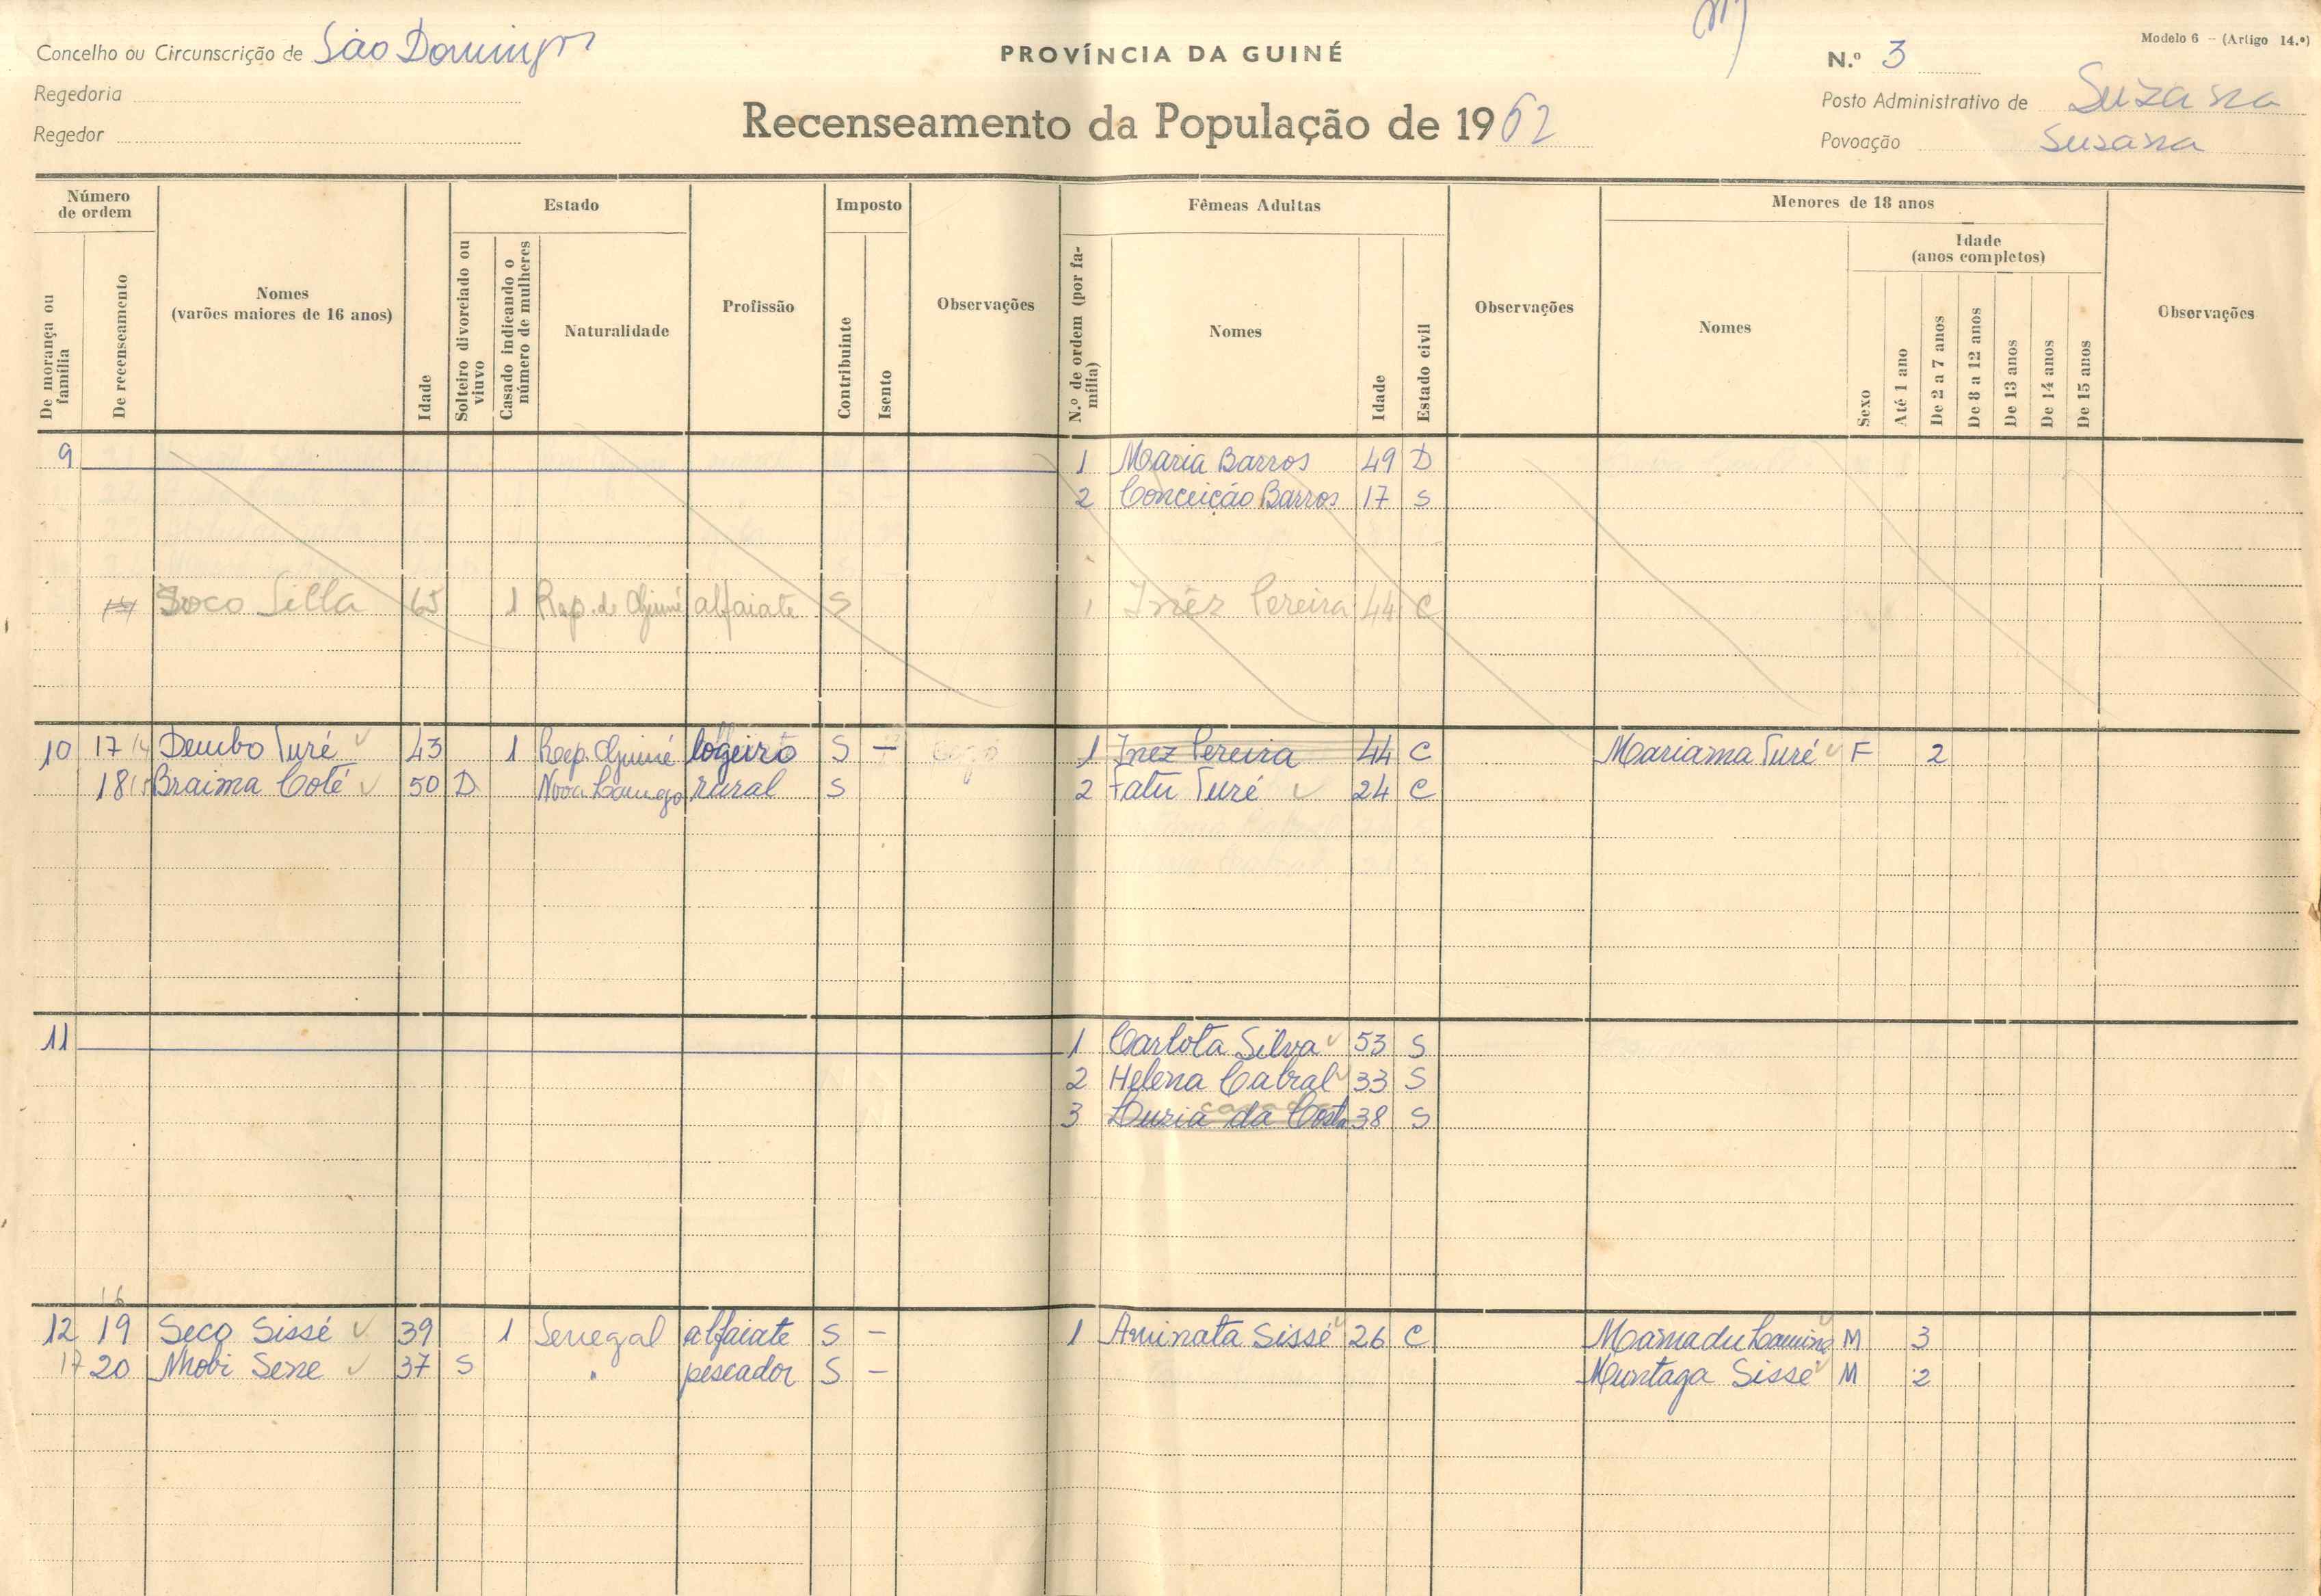 Concelho ou Circunscrição de São Domingos
PROVÍNCIA DA GUINÉ
N.º 3
Modelo 6 – (Artigo 14.º)
Regedoria
Posto Administrativo de Suzana
Regedor
Recenseamento da População de 1962
Povoação Susana
Número de ordem
Estado
Imposto
Fêmeas Adultas
Menores de 18 anos
De morança ou família
De recenseamento
Nomes (varões maiores de 16 anos)
Idade
Solteiro divorciado ou viuvo
Casado indicando o número de mulheres
Naturalidade
Profissão
Contribuinte
Isento
Observações
N.º de ordem (por família)
Nomes
Idade
Estado civil
Observações
Nomes
Sexo
Idade (anos completos)
Até 1 ano
De 2 a 7 anos
De 8 a 12 anos
De 13 anos
De 14 anos
De 15 anos
Observações
9 1 Maria Barros 49 D
2 Conceição Barros 17 S
Soco Silla 65 1 Rep. de Guiné alfaiate S 1 Inêz Pereira 44 C
10 17 14 Dembo Turé 43 1 Rep. Guiné logeiro S – 1 Inez Pereira 44 C Mariama Turé F 2
18 15 Braima Coté 50 D Nova Lamego rural S 2 Fatu Turé 24 C
11 1 Carlota Silva 53 S
2 Helena Cabral 33 S
3 Luzia da Costa 38 S
16
12 19 Seco Sissé 39 1 Senegal alfaiate S – 1 Aminata Sissé 26 C Mamadu Lamine M 3
17 20 Nhobi Sene 37 S " pescador S – Muntaga Sissé M 2